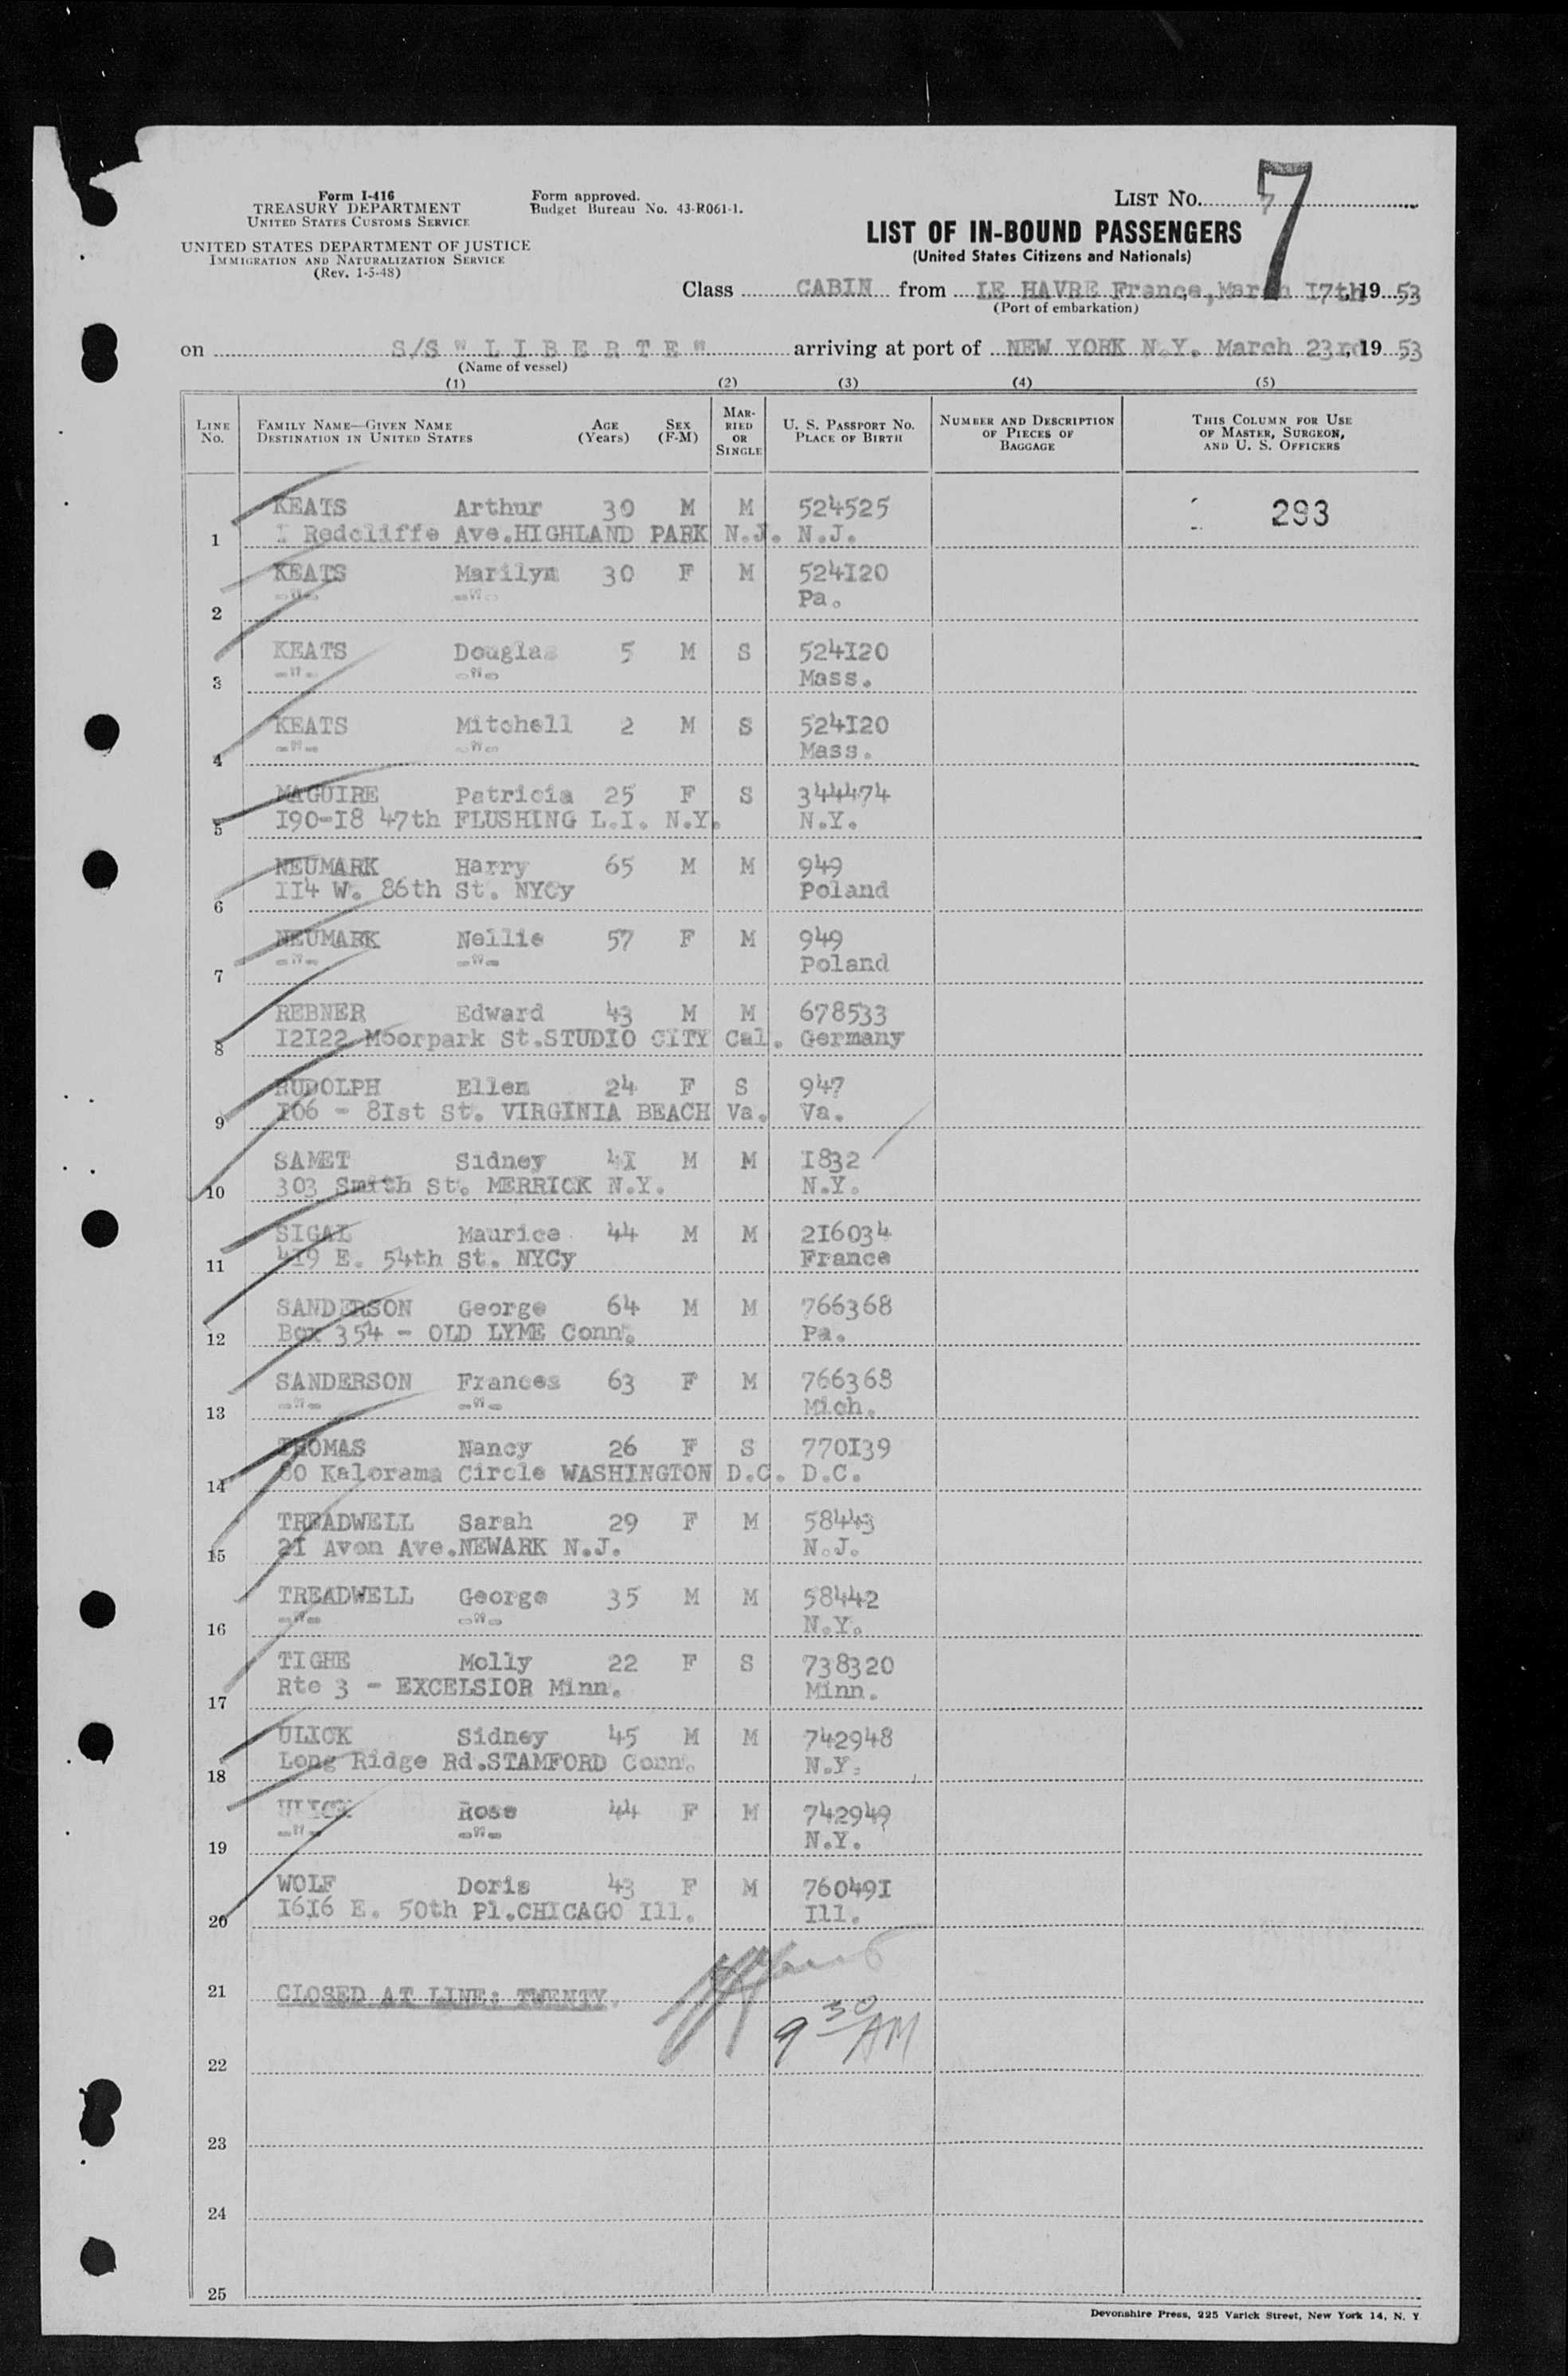 Form I-416
TREASURY DEPARTMENT
UNITED STATES CUSTOMS SERVICE
UNITED STATES DEPARTMENT OF JUSTICE
IMMIGRATION AND NATURALIZATION SERVICE
(Rev. 1-5-48)
Form approved.
Budget Bureau No. 43-R061-1.
LIST NO. 7
7
LIST OF IN-BOUND PASSENGERS
(United States Citizens and Nationals)
Class CABIN from LE HAVRE France, March 17th, 19 53
(Port of embarkation)
on S/S "L I B E R T E" arriving at port of NEW YORK N.Y. March 23rd, 19 53
(Name of vessel)
(1) (2) (3) (4) (5)
LINE NO. FAMILY NAME—GIVEN NAME DESTINATION IN UNITED STATES AGE (Years) SEX (F-M) MARRIED OR SINGLE U. S. PASSPORT NO. PLACE OF BIRTH NUMBER AND DESCRIPTION OF PIECES OF BAGGAGE THIS COLUMN FOR USE OF MASTER, SURGEON, AND U. S. OFFICERS
KEATS Arthur 30 M M 524525 293
1 I Redcliffe Ave.HIGHLAND PARK N.J. N.J.
KEATS Marilyn 30 F M 524I20
2 -"- -"- Pa.
KEATS Douglas 5 M S 524I20
3 -"- -"- Mass.
KEATS Mitchell 2 M S 524I20
4 -"- -"- Mass.
MAGUIRE Patricia 25 F S 344474
5 I90-I8 47th FLUSHING L.I. N.Y. N.Y.
NEUMARK Harry 65 M M 949
6 II4 W. 86th St. NYCy Poland
NEUMARK Nellie 57 F M 949
7 -"- -"- Poland
REBNER Edward 43 M M 678533
8 I2I22 Moorpark St.STUDIO CITY Cal. Germany
RUDOLPH Ellen 24 F S 947
9 I06 - 8Ist St. VIRGINIA BEACH Va. Va.
SAMET Sidney 4I M M I832
10 303 Smith St. MERRICK N.Y. N.Y.
SIGAL Maurice 44 M M 2I6034
11 4I9 E. 54th St. NYCy France
SANDERSON George 64 M M 766368
12 Box 354 - OLD LYME Conn. Pa.
SANDERSON Frances 63 F M 766368
13 -"- -"- Mich.
THOMAS Nancy 26 F S 770I39
14 80 Kalorama Circle WASHINGTON D.C. D.C.
TREADWELL Sarah 29 F M 58443
15 2I Avon Ave.NEWARK N.J. N.J.
TREADWELL George 35 M M 58442
16 -"- -"- N.Y.
TIGHE Molly 22 F S 738320
17 Rte 3 - EXCELSIOR Minn. Minn.
ULICK Sidney 45 M M 742948
18 Long Ridge Rd.STAMFORD Conn. N.Y.
ULICK Rose 44 F M 742949
19 -"- -"- N.Y.
WOLF Doris 43 F M 76049I
20 I6I6 E. 50th Pl.CHICAGO Ill. Ill.
21 CLOSED AT LINE: TWENTY.
9 30 AM
22
23
24
25
Devonshire Press, 225 Varick Street, New York 14, N. Y.